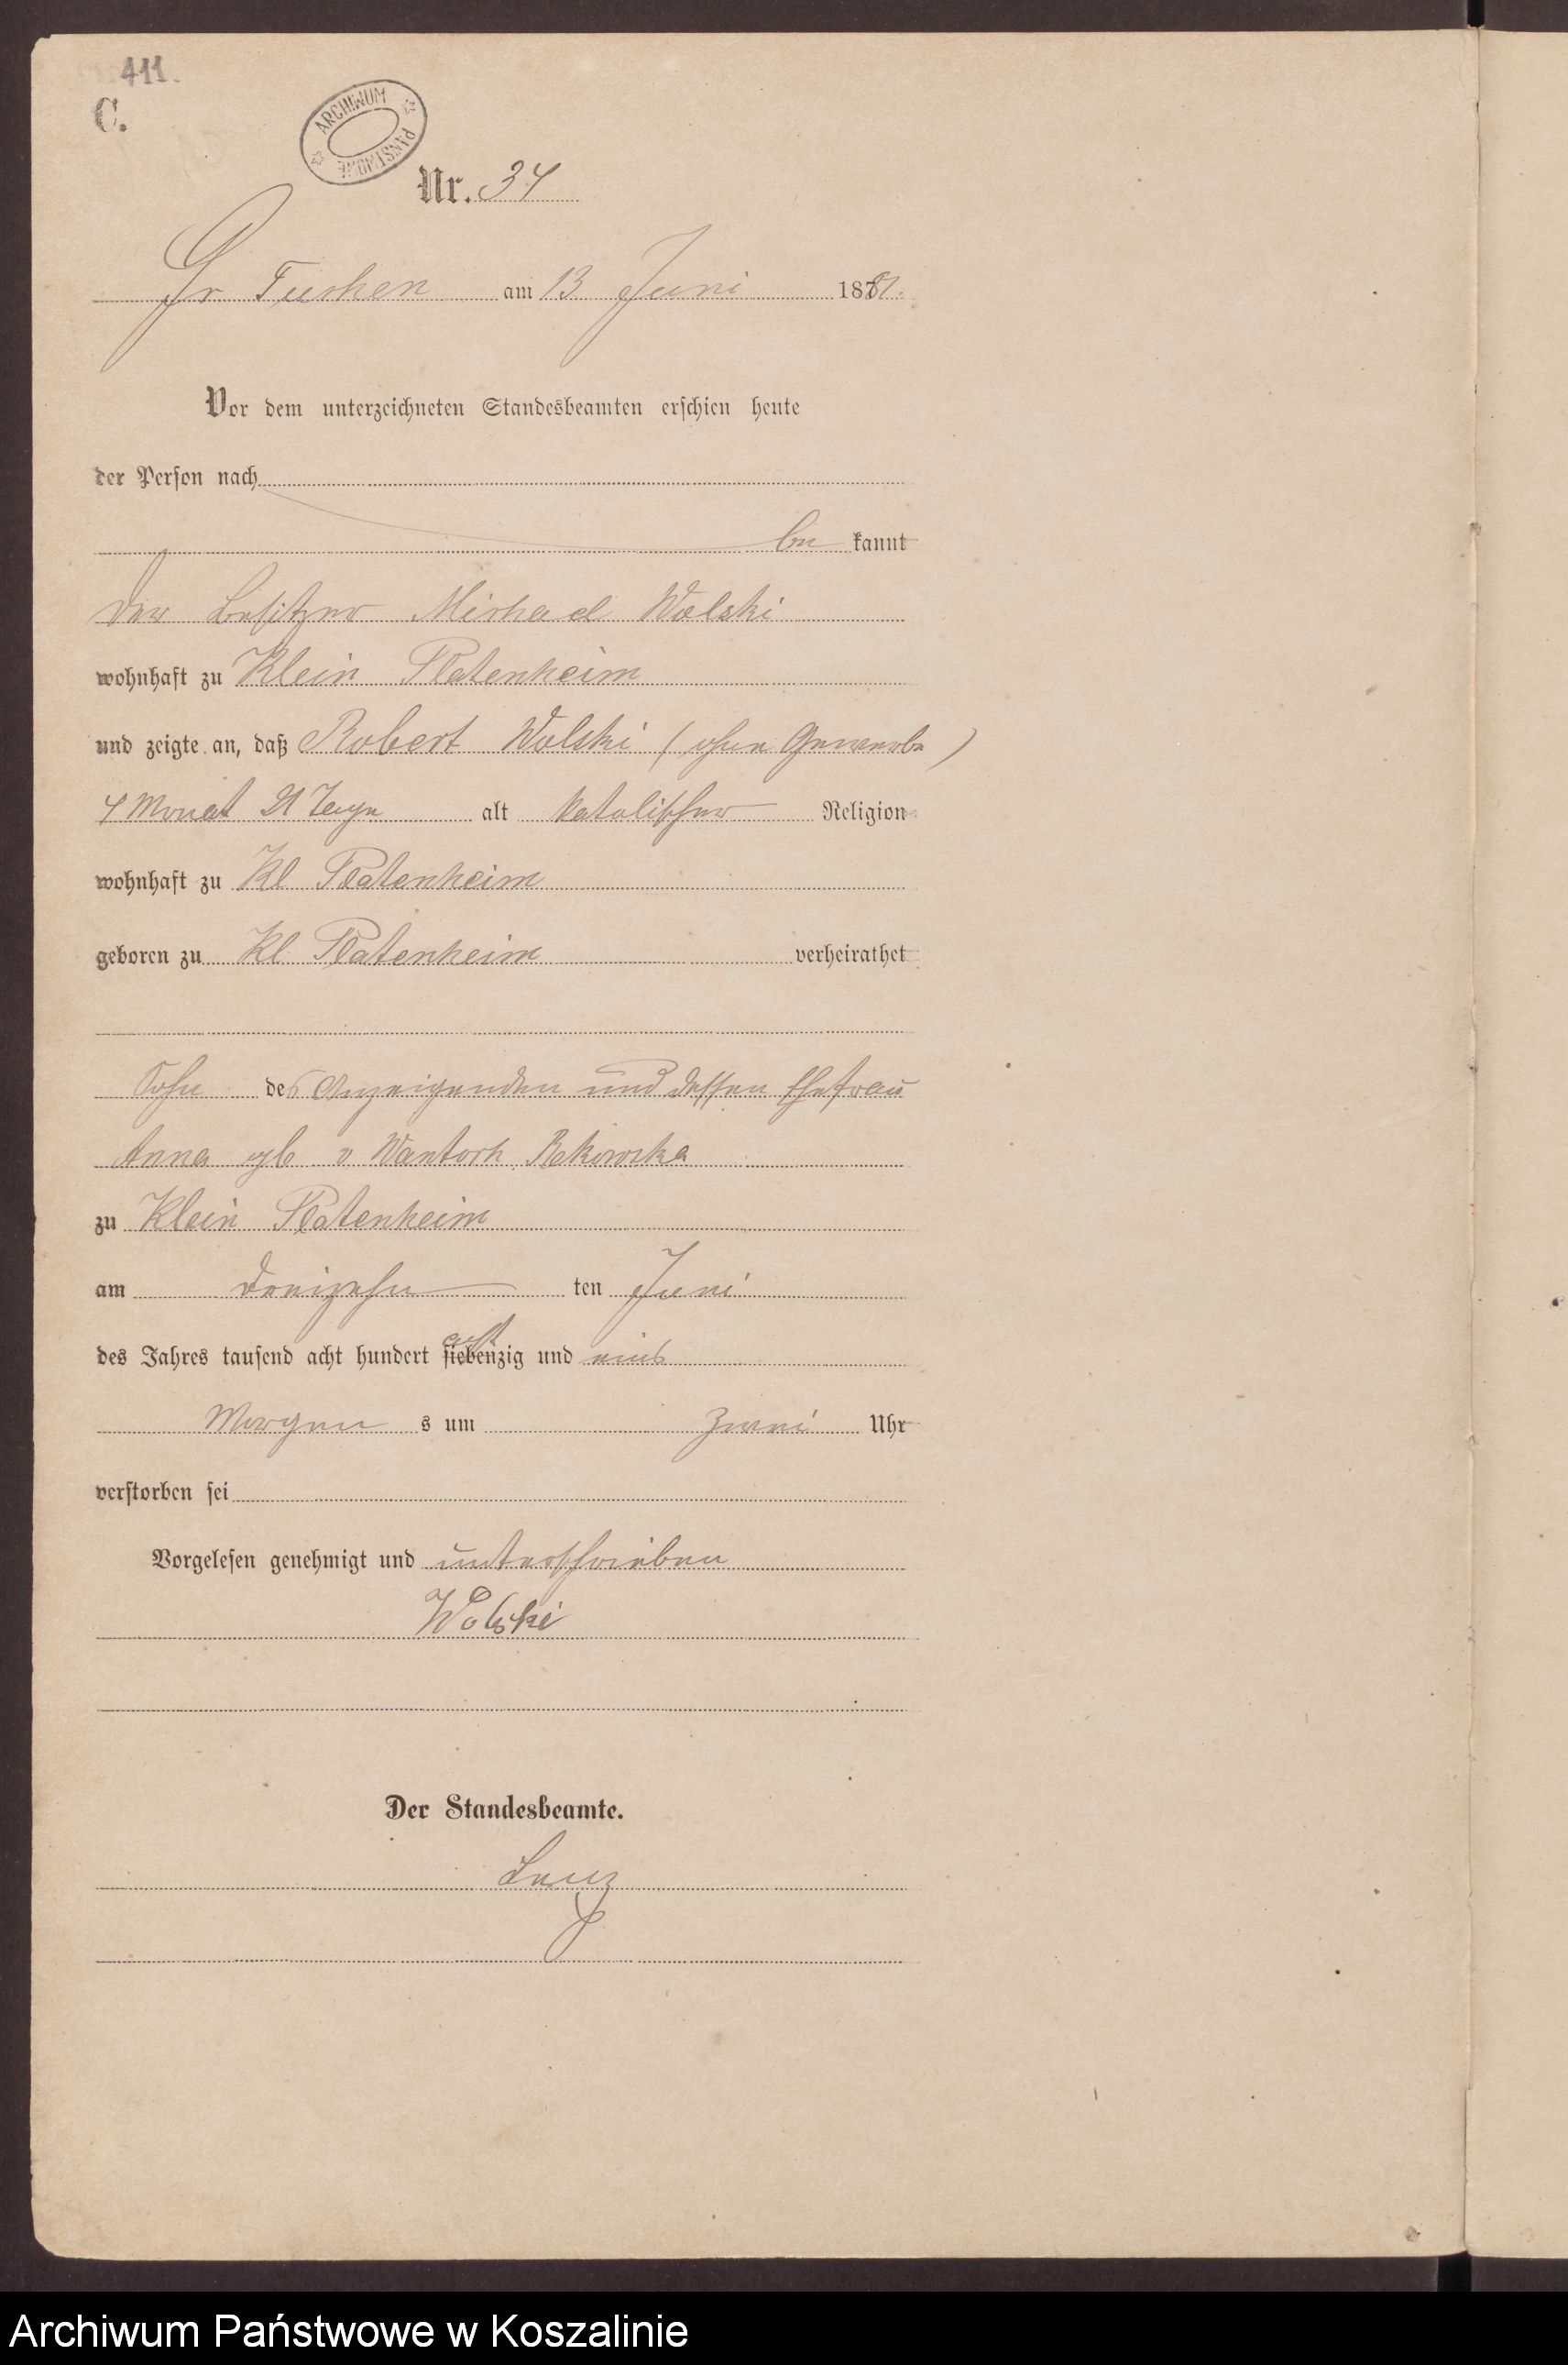 411.
C.
ARCHIWUM PAŃSTWOWE
Nr. 34
Gr Tuchen am 13 Juni 1881.
Vor dem unterzeichneten Standesbeamten erschien heute
der Person nach
be kannt
der Besitzer Michael Wolski
wohnhaft zu Klein Platenheim
und zeigte an, daß Robert Wolski (ohne Gewerbe)
4 Monat 21 Tage alt katolischer Religion
wohnhaft zu Kl Platenheim
geboren zu Kl Platenheim verheirathet
Sohn des Anzeigenden und dessen Ehefrau
Anna geb v Wantoch Rekowska
zu Klein Platenheim
am dreizehn ten Juni
des Jahres tausend acht hundert achtzig und eins
Morgen s um zwei Uhr
verstorben sei
Vorgelesen genehmigt und unterschrieben
Wolski
Der Standesbeamte.
Archiwum Państwowe w Koszalinie